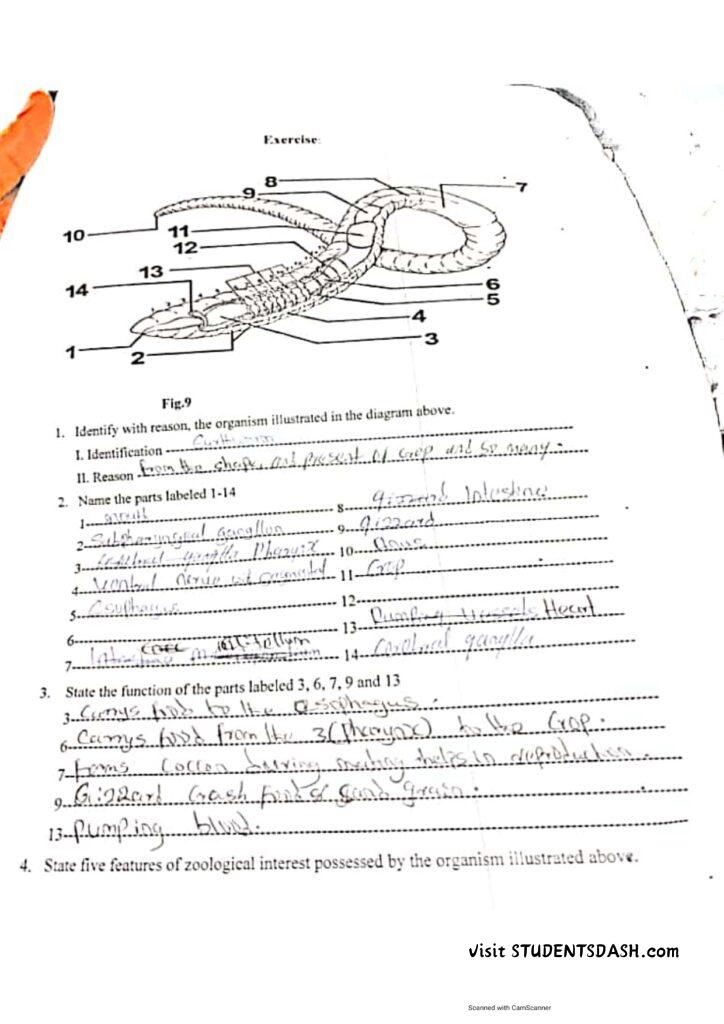 Exercise:
8
9
7
10
11
12
13
14
6
5
4
3
1
2
Fig.9
1. Identify with reason, the organism illustrated in the diagram above.
I. Identification
II. Reason from the shape, and present of crop and so many.
2. Name the parts labeled 1-14
1 mouth
8 gizzard Intestine
2 Subpharyngeal ganglion
9 gizzard
3 cerebral ganglia Pharynix
10 Anus
4 Ventral nerve
11 Crop
5 Esophagus
12
6
13 Pumping Vessels Heart
7 Intestine
14 Cerebral ganglia
3. State the function of the parts labeled 3, 6, 7, 9 and 13
3 Carrys food to the Oesophagus.
6 Carrys food from the 3(Pharynx) to the Crop.
7 Forms Cocoon during mating helps in reproduction.
9 Gizzard Crash food & sand grain.
13 Pumping blood.
4. State five features of zoological interest possessed by the organism illustrated above.
Visit STUDENTSDASH.com
Scanned with CamScanner